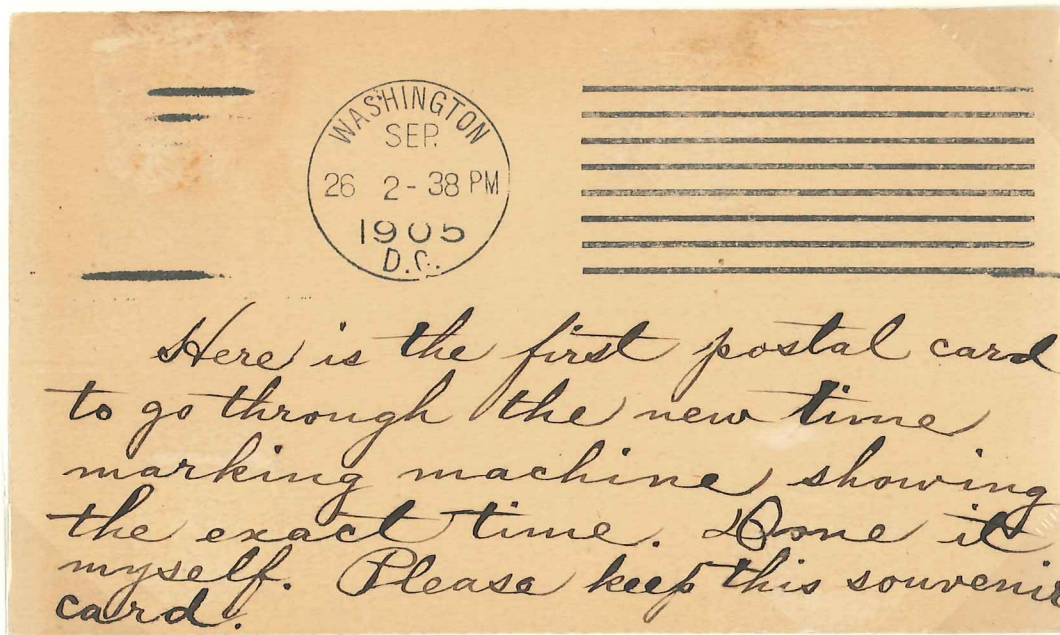 WASHINGTON
SEP.
26 2-38 PM
1905
D.C.
Here is the first postal card
to go through the new time
marking machine, showing
the exact time. Done it
myself. Please keep this souvenir
card.